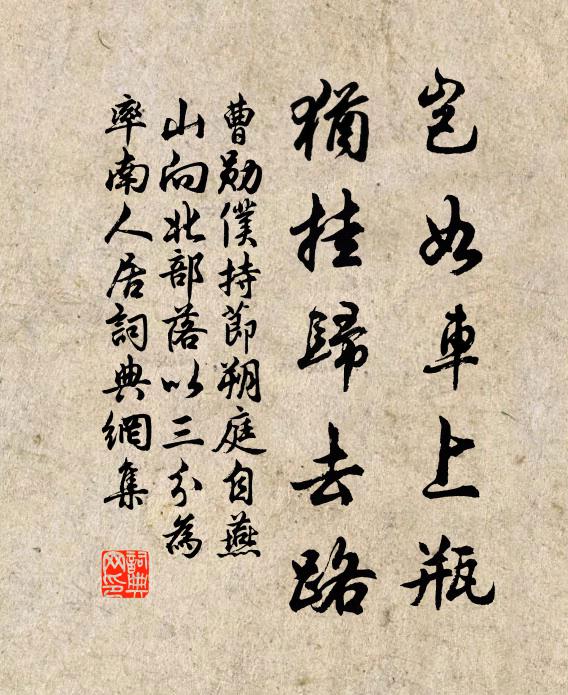 岂如車上瓶
猶挂歸去路
曹勛僕持節朔庭自燕
山向北部落以三分為
率南人居詞典網集
詞典
网印